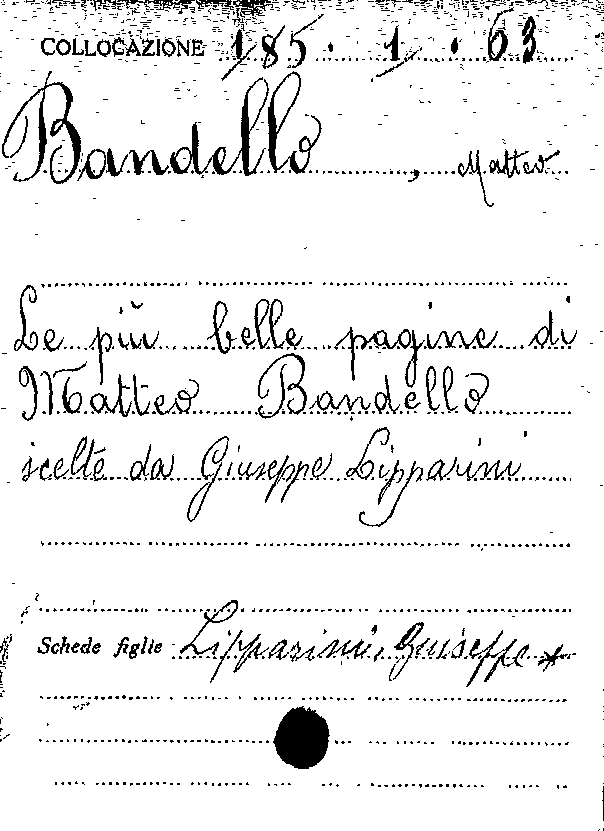 COLLOCAZIONE 185. 1. 63
Bandello, Matteo
Le più belle pagine di
Matteo Bandello
scelte da Giuseppe Lipparini
Schede figlie Lipparini, Giuseppe *